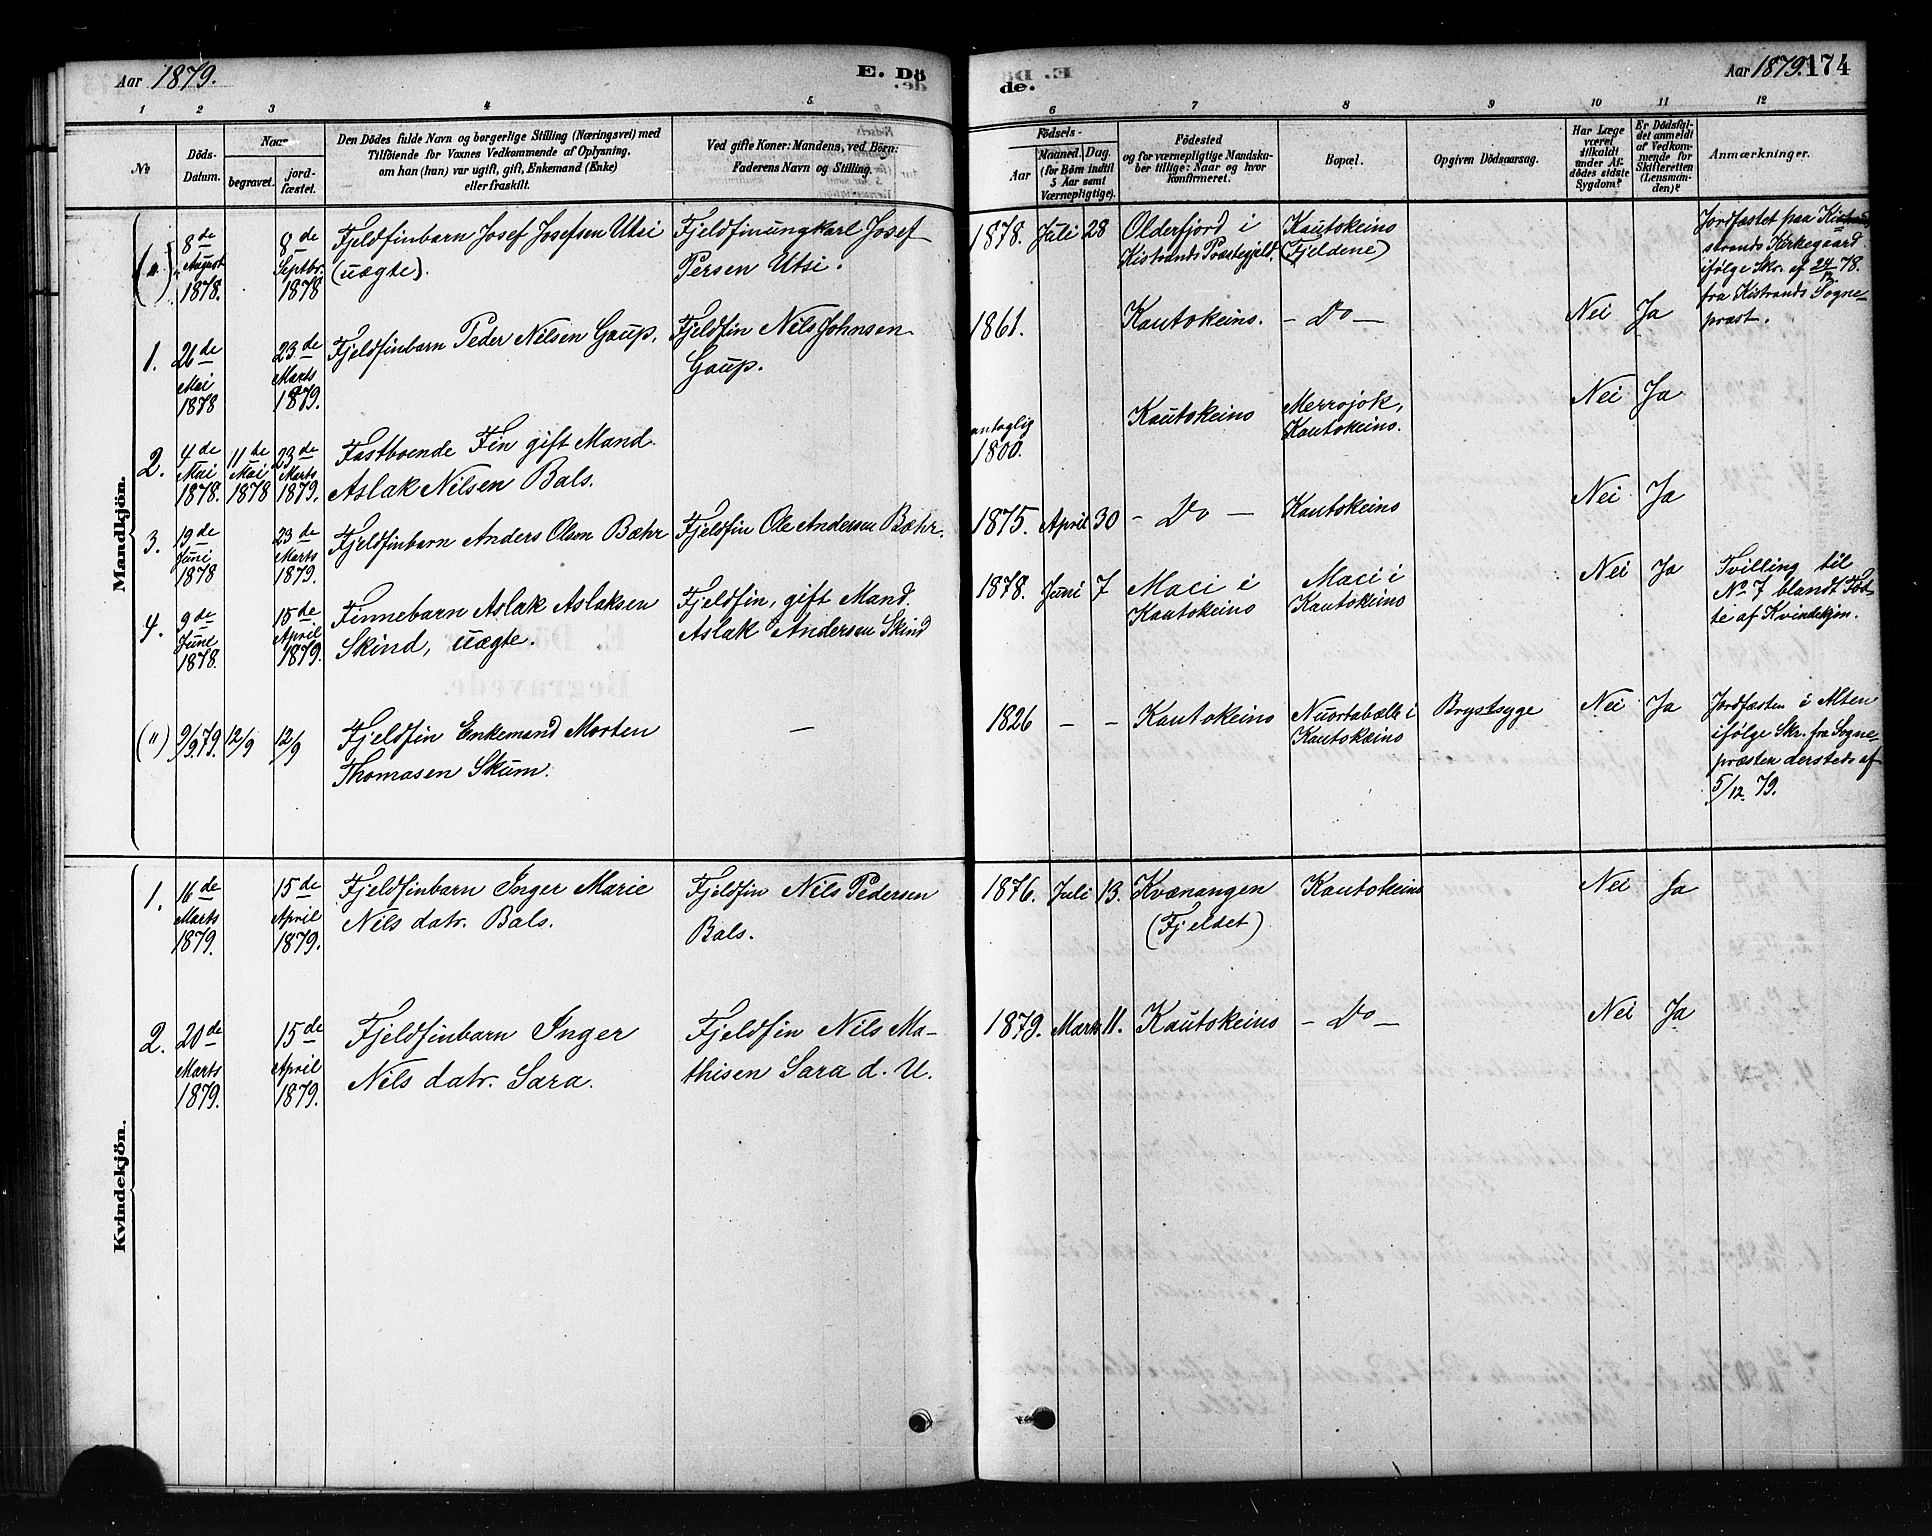 Aar 1879.
E. Dö
de.
Aar 1879. 174
1 2 3 4 5
6 7 8 9 10 11 12
No
Döds-
Datum.
Naar
begravet.
jord-
fæstet.
Den Dödes fulde Navn og borgerlige Stilling (Næringsvei) med
Tilföiende for Voxnes Vedkommende af Oplysning,
om han (hun) var ugift, gift, Enkemand (Enke)
eller fraskilt.
Ved gifte Koner: Mandens, ved Börn:
Faderens Navn og Stilling.
Födsels-
Aar
Maaned. Dag.
(for Børn indtil
5 Aar samt
Værnepligtige).
Födested
og for værnepligtige Mandska-
ber tillige: Naar og hvor
konfirmeret.
Bopæl.
Opgiven Dödsaarsag.
Har Læge
været
tilkaldt
under Af-
dödes sidste
Sygdom?
Er Dödsfal-
det anmeldt
af Vedkom-
mende for
Skifteretten
(Lensman-
den)?
Anmærkninger.
Mandkjön.
(")
8de
August
1878.
8de
Septbr.
1878
Fjeldfinbarn Josef Josefsen Utsi
(uægte).
Fjeldfinungkarl Josef
Persen Utsi.
1878. Juli 28
Olderfjord i
Kistrands Præstegjeld.
Kautokeino
(Fjeldene)
Jordfæstet paa Ki-
strands Kirkegaard
ifølge Skr. af 24/12 78.
fra Kistrands Sogne-
præst.
1.
26de
Mai
1878
23de
Marts
1879.
Fjeldfinbarn Peder Nilsen Gaup.
Fjeldfin Nils Johnsen
Gaup.
1861.
Kautokeino.
- Do -
Nei Ja
2.
4de
Mai
1878.
11de
Mai
1878
23de
Marts
1879.
Fastboende Fin gift Mand
Aslak Nilsen Bals.
antaglig
1800.
Kautokeino
Merrojok,
Kautokeino.
Nei Ja
3.
19de
Juni
1878
23de
Marts
1879.
Fjeldfinbarn Anders Olsen Bæhr
Fjeldfin Ole Andersen Bæhr.
1875. April 30
- Do -
Kautokeino
Nei Ja
4.
9de
Juni
1878.
15de
April
1879.
Finnebarn Aslak Aslaksen
Skind, uægte.
Fjeldfin, gift Mand
Aslak Andersen Skind
1878. Juni 7
Maci i
Kautokeino
Maci i
Kautokeino
Nei Ja
Tvilling til
No 7 blandt Fød-
te af Kvindekjøn.
(") 9/9 79. 12/9 12/9
Fjeldfin Enkemand Morten
Thomasen Skum.
-
1826 - -
Kautokeino
Nuortabælle i
Kautokeino
Brystsyge
Nei Ja
Jordfæsten i Alten
ifølge Skr. fra Sogne-
præsten dersteds af
5/12 79.
Kvindekjön.
1.
16de
Marts
1879.
15de
April
1879.
Fjeldfinbarn Inger Marie
Nils datr. Bals.
Fjeldfin Nils Pedersen
Bals.
1876. Juli 13.
Kvænangen
(Fjeldet)
Kautokeino
Nei Ja
2.
20de
Marts
1879.
15de
April
1879.
Fjeldfinbarn Inger
Nils datr. Sara.
Fjeldfin Nils Ma-
thisen Sara d. U.
1879. Marts 11.
Kautokeino
- Do -
Nei Ja